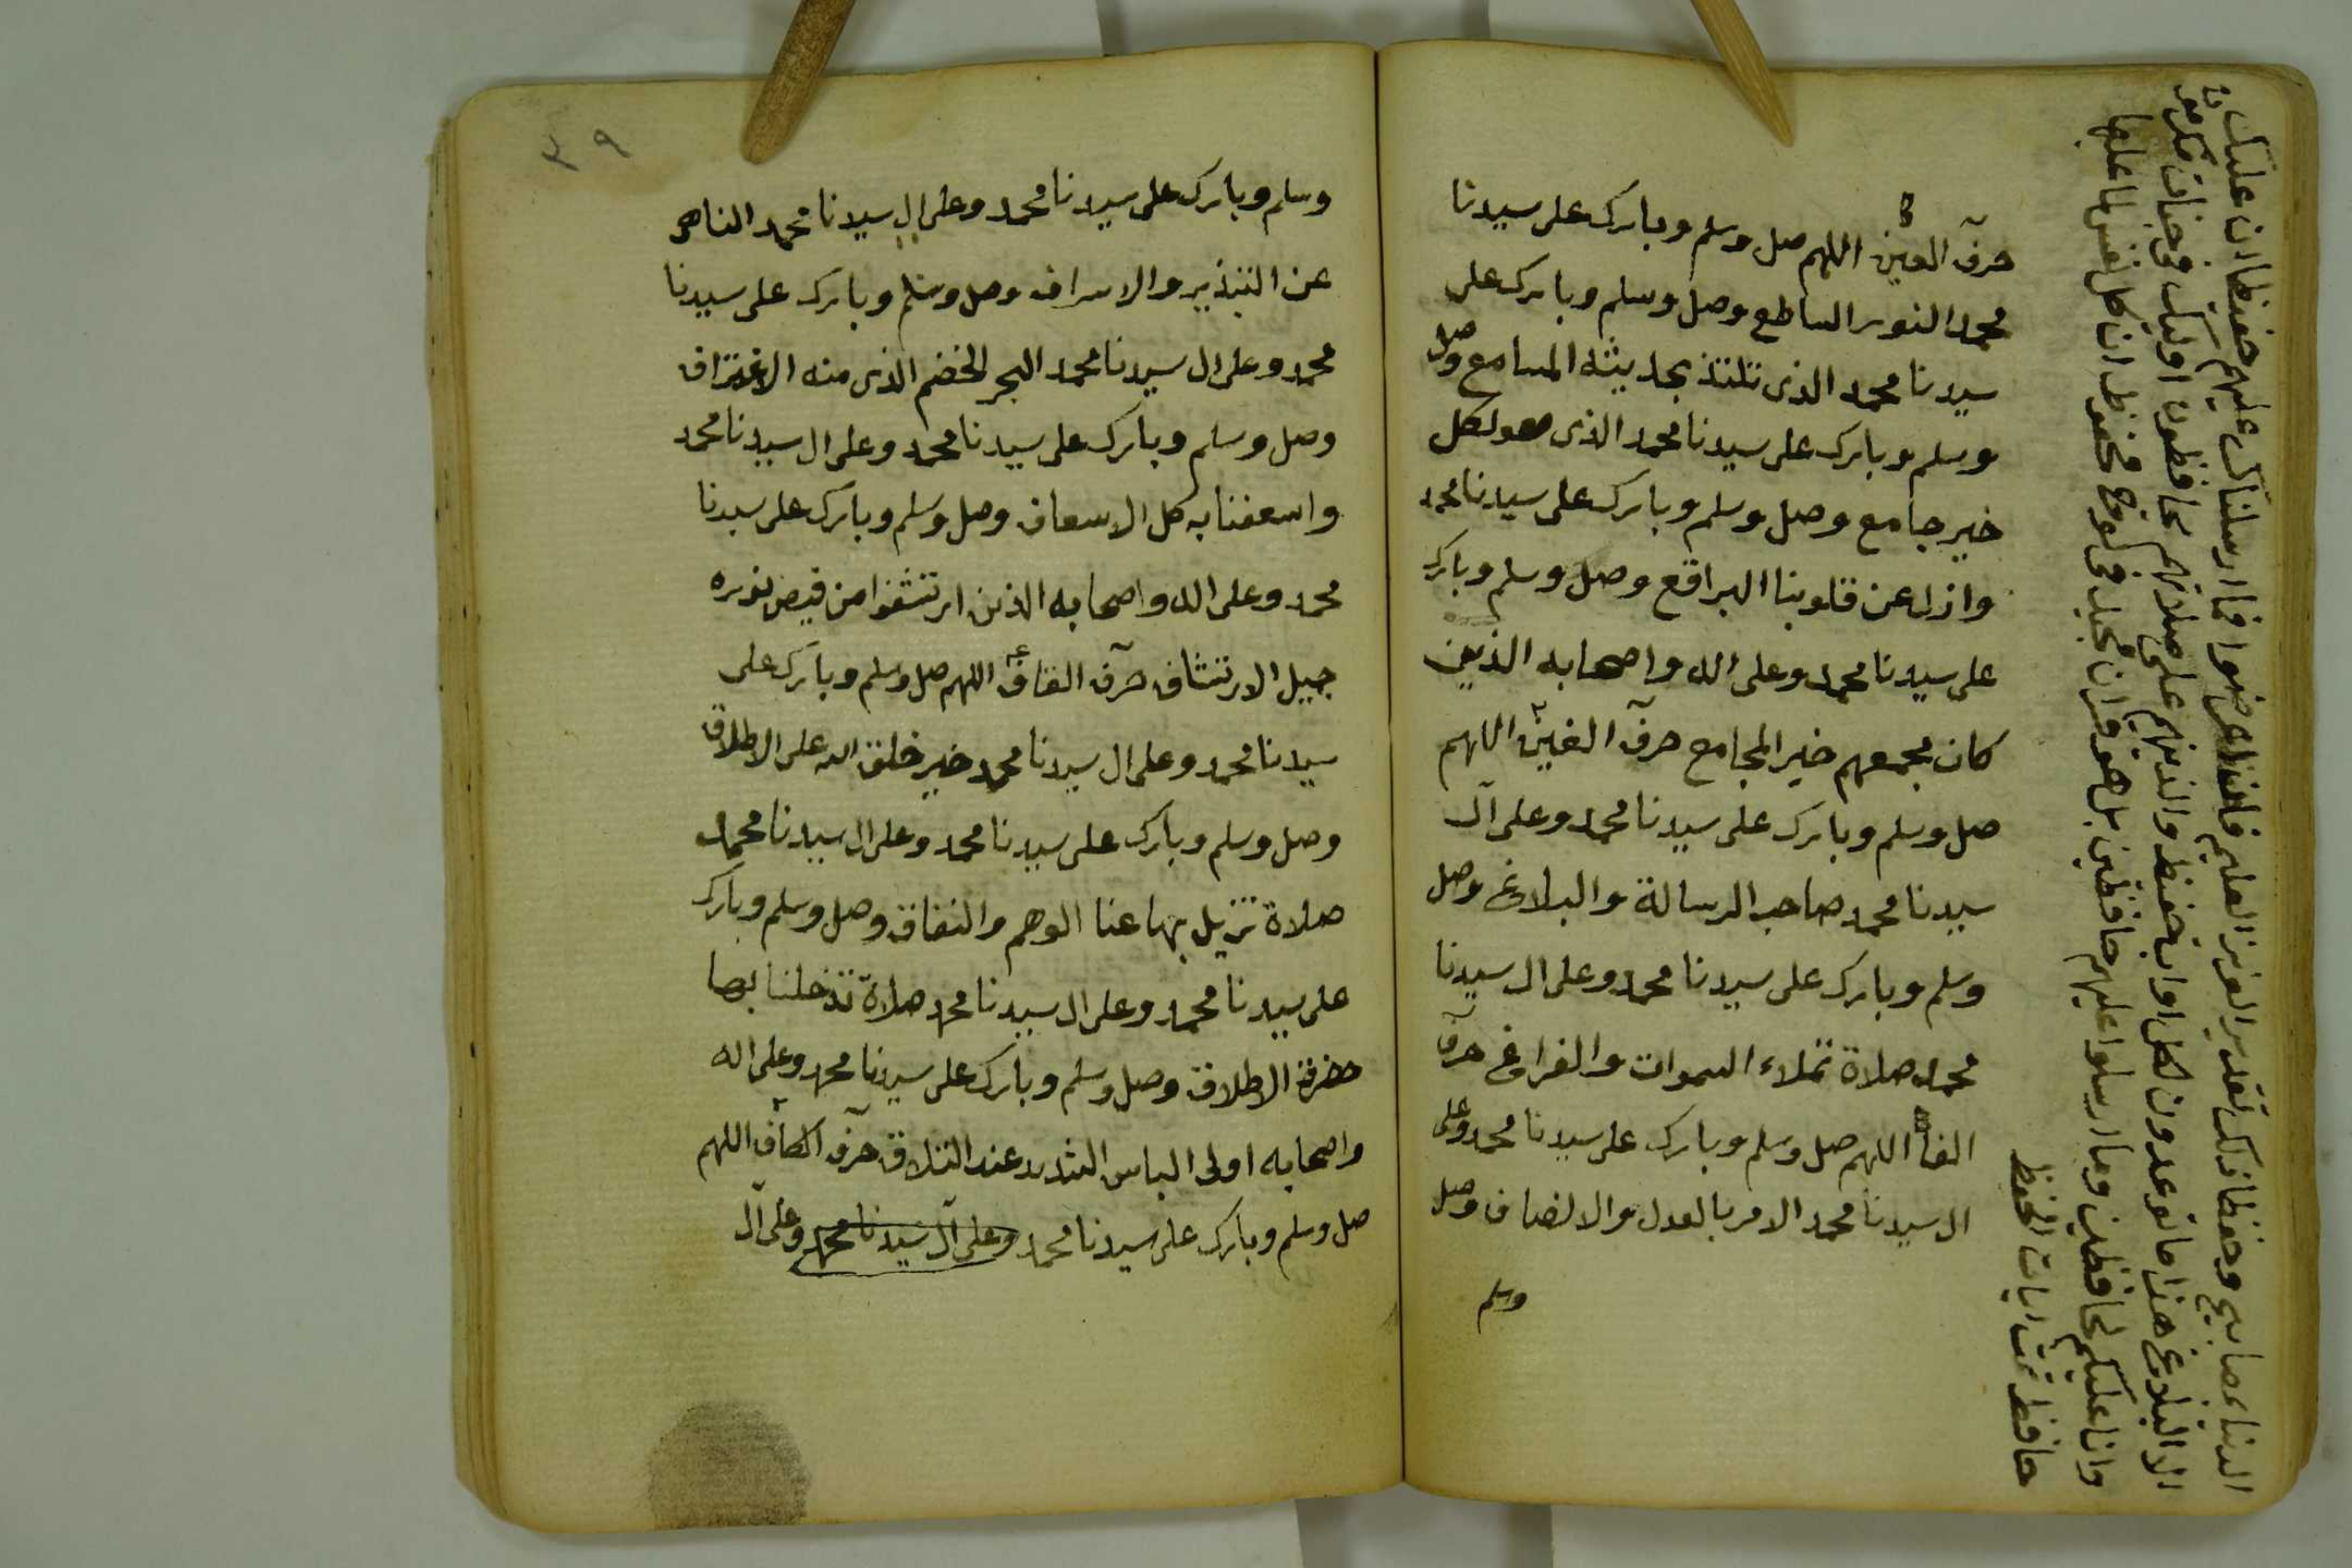 حرف العين اللهم صل وسلم وبارك على سيدنا
محمد النور الساطع وصل وسلم وبارك على
سيدنا محمد الذى تلتذ بحديثه المسامع وصل
وسلم وبارك على سيدنا محمد الذى هو لكل
خير جامع وصل وسلم وبارك على سيدنا محمد
وازل عن قلوبنا البراقع وصل وسلم وبارك
على سيدنا محمد وعلى اله واصحابه الذين
كان مجمعهم خير المجامع حرف الغين اللهم
صل وسلم وبارك على سيدنا محمد وعلى آل
سيدنا محمد صاحب الرسالة والبلاغ وصل
وسلم وبارك على سيدنا محمد وعلى ال سيدنا
محمد صلاة تملاء السموات والفراغ حرف
الفاء اللهم صل وسلم وبارك على سيدنا محمد وعلى
ال سيدنا محمد الامر بالعدل والانصاف وصل
وسلم
الدنيا بمصابيح وحفظا ذلك تقدير العزيز العليم فان اعرضوا فما ارسلناك عليهم حفيظا ان عليك
الا البلاغ هذا ما توعدون لكل اواب حفيظ والذين هم على صلاتهم يحافظون اوليك فى جنات مكرمون
وان عليكم لحافظين وما ارسلوا عليهم حافظين بل هو قران مجيد فى لوح محفوظ ان كل نفس لما عليها
حافظ تمت ايات الحفظ
٣٩
وسلم وبارك على سيدنا محمد وعلى ال سيدنا محمد الناهى
عن التبذير والاسراف وصل وسلم وبارك على سيدنا
محمد وعلى ال سيدنا محمد البحر الخضم الذى منه الاغتراف
وصل وسلم وبارك على سيدنا محمد وعلى ال سيدنا محمد
واسعفنا به كل الاسعاف وصل وسلم وبارك على سيدنا
محمد وعلى اله واصحابه الذين ارتشفوا من فيض نوره
جميل الارتشاف حرف القاف اللهم صل وسلم وبارك على
سيدنا محمد وعلى ال سيدنا محمد خير خلق الله على الاطلاق
وصل وسلم وبارك على سيدنا محمد وعلى ال سيدنا محمد
صلاة تزيل بها عنا الوهم والنفاق وصل وسلم وبارك
على سيدنا محمد وعلى ال سيدنا محمد صلاة تدخلنا بها
حضرة الاطلاق وصل وسلم وبارك على سيدنا محمد وعلى اله
واصحابه اولى الباس الشديد عند التلاق حرف الكاف اللهم
صل وسلم وبارك على سيدنا محمد وعلى آل سيدنا محمد وعلى آل